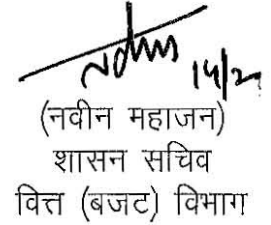 (नवीन महाजन)
शासन सचिव
वित्त (बजट) विभाग